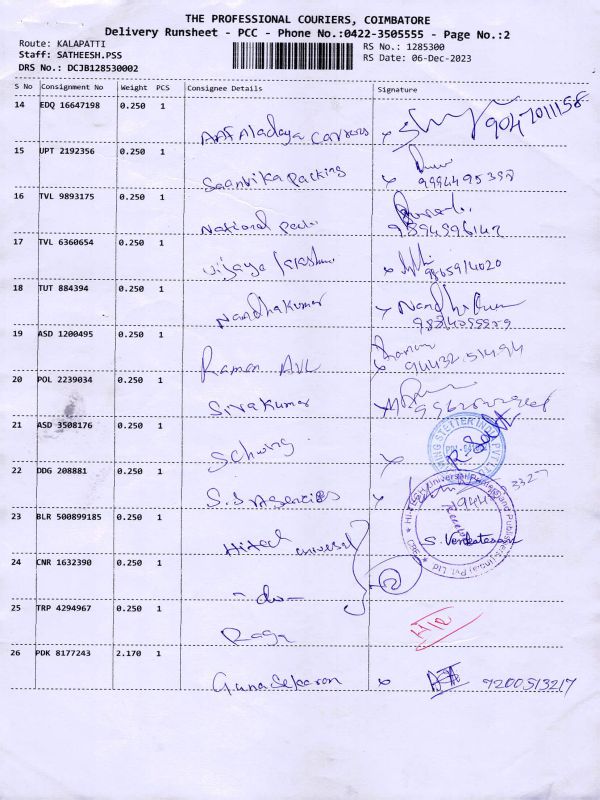 THE PROFESSIONAL COURIERS, COIMBATORE
Delivery Runsheet - PCC - Phone No.:0422-3505555 - Page No.:2
Route: KALAPATTI
Staff: SATHEESH.PSS
DRS No.: DCJB128530002
RS No.: 1285300
RS Date: 06-Dec-2023
S No Consignment No Weight PCS Consignee Details Signature
14 EDQ 16647198 0.250 1
9047011158
15 UPT 2192356 0.250 1
Saanvika packing
16 TVL 9893175 0.250 1
National
17 TVL 6360654 0.250 1
Vijaya
9865914020
18 TUT 884394 0.250 1
Nandhakumar
19 ASD 1200495 0.250 1
Raman AVL
94432.51494
20 POL 2239034 0.250 1
Sivakumar
21 ASD 3508176 0.250 1
Schwing
22 DDG 208881 0.250 1
S.S Agencies
23 BLR 500899185 0.250 1
Hitech universal
S. Venkatesan
24 CNR 1632390 0.250 1
- do -
25 TRP 4294967 0.250 1
26 PDK 8177243 2.170 1
Gunasekaran
9200513217